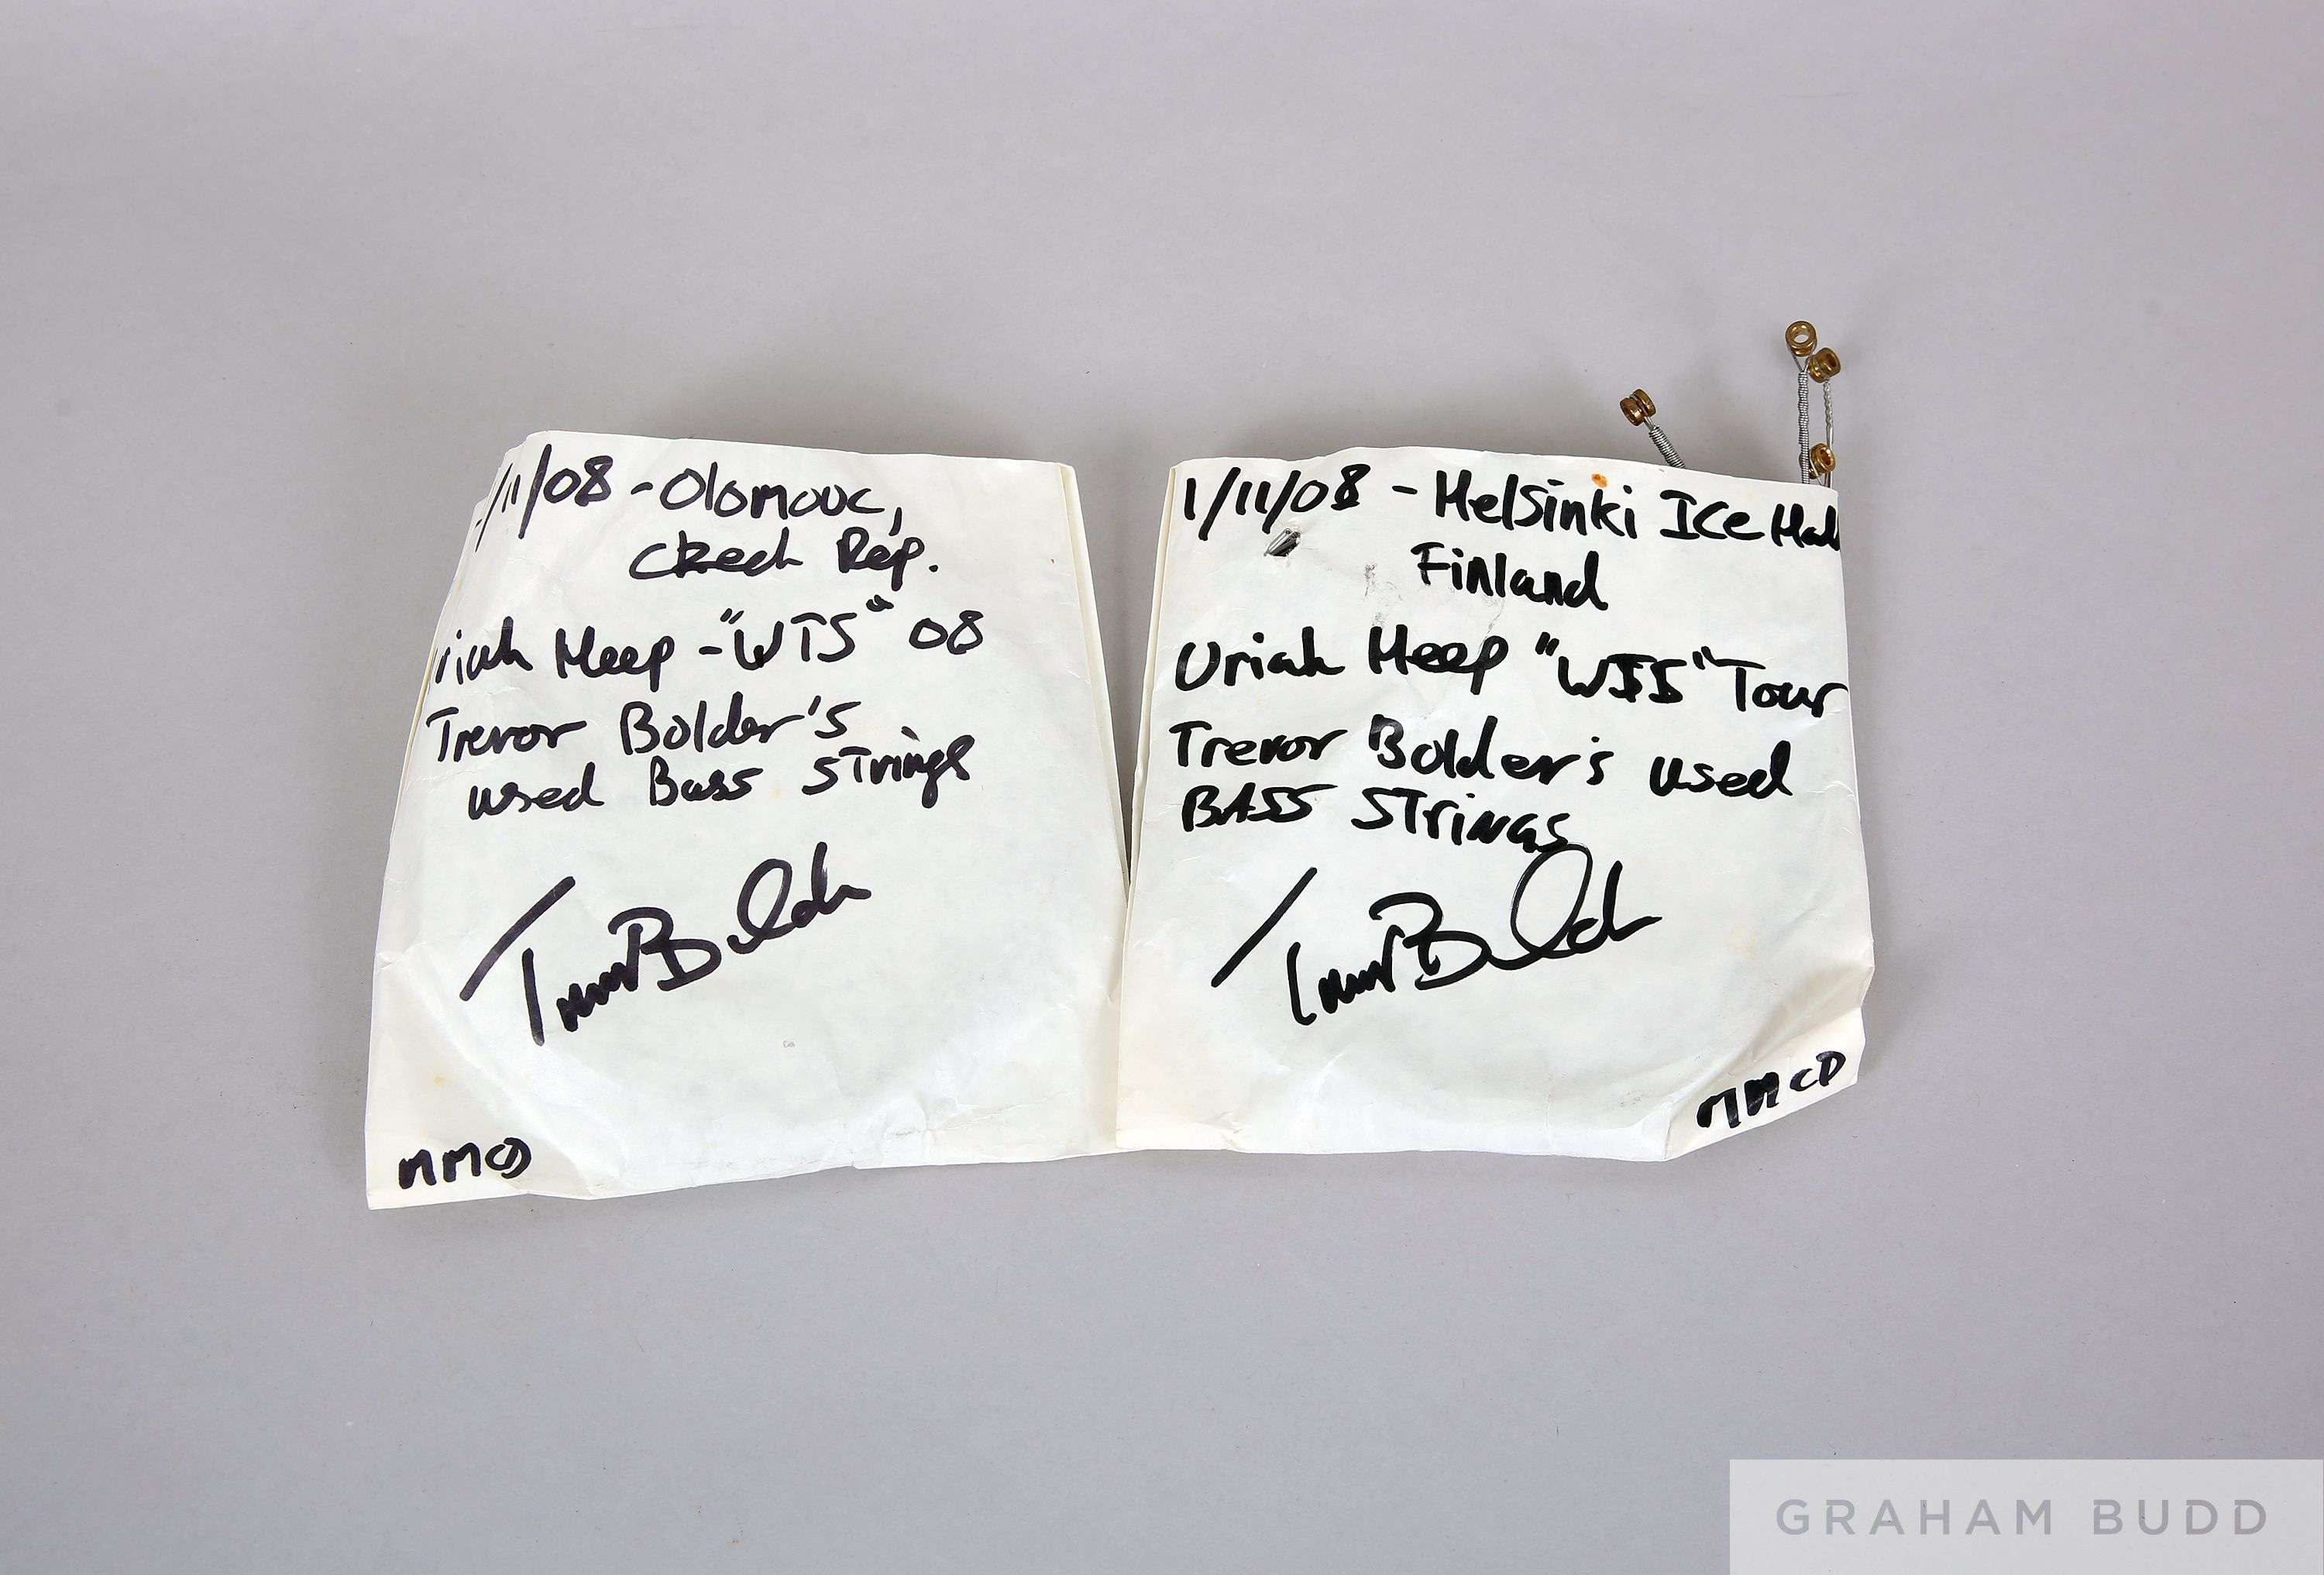 /11/08 - Olomouc,
Czech Rep.
riah Heep - "WTS" 08
Trevor Bolder's
used Bass Strings
Trevor Bolder
MMCD
1/11/08 - Helsinki Ice Hall
Finland
Uriah Heep "WTS" Tour
Trevor Bolder's used
BASS Strings
Trevor Bolder
MMCD
GRAHAM BUDD